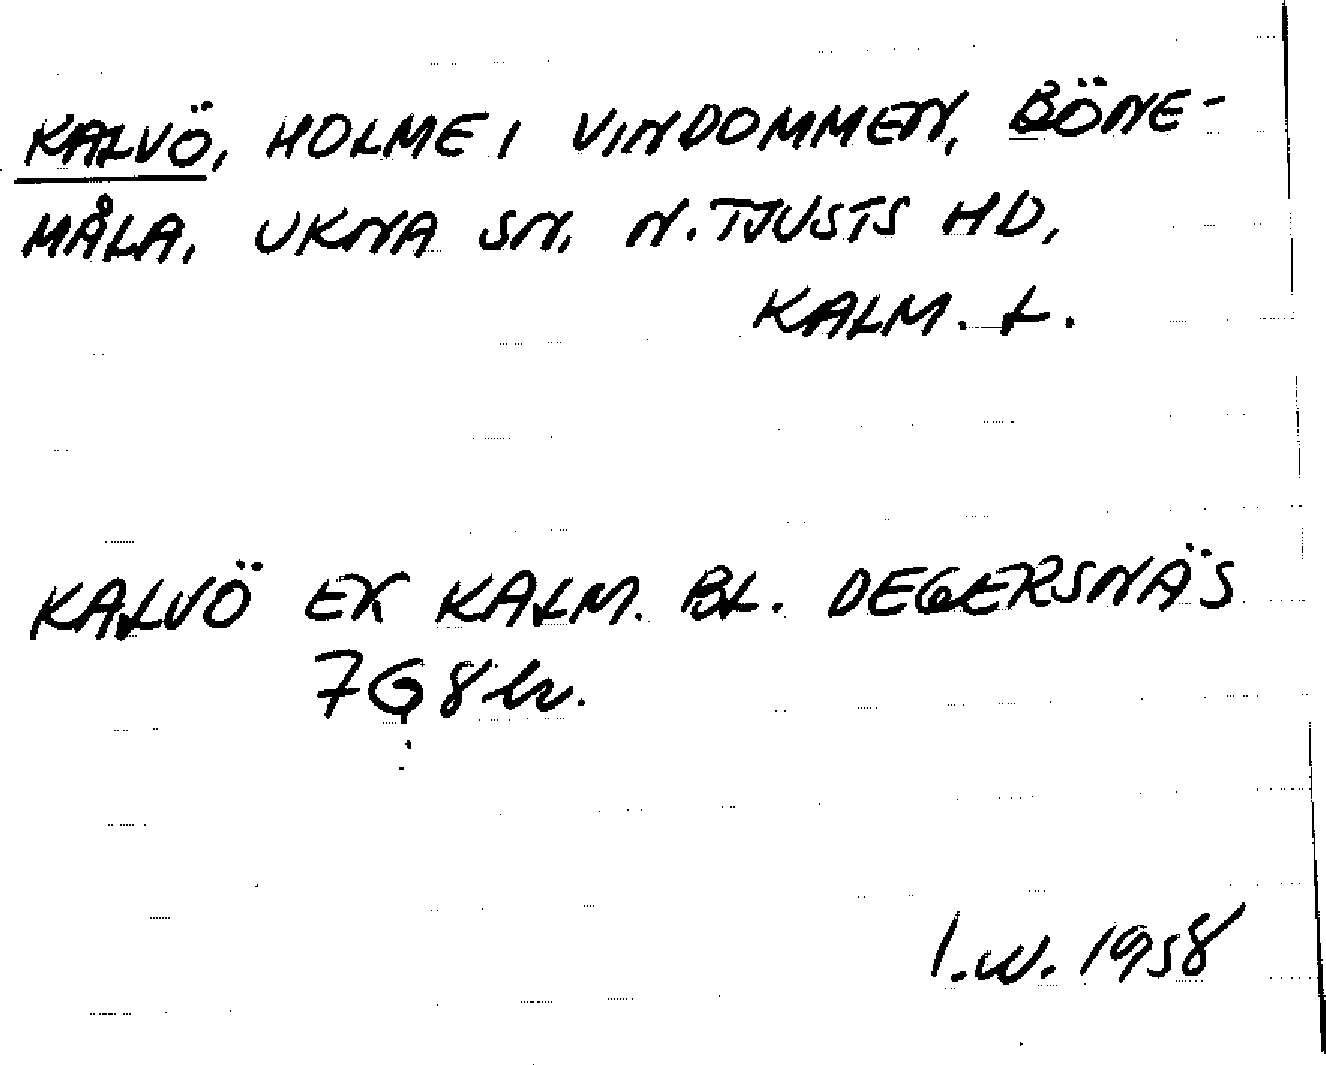 KALVÖ, HOLME I VINDOMMEN, BÖNE-
MÅLA, UKNA SN, N. TJUSTS HD,
KALM. L.
KALVÖ EK KALM. BL. DEGERSNÄS
7G8
I.W. 1958